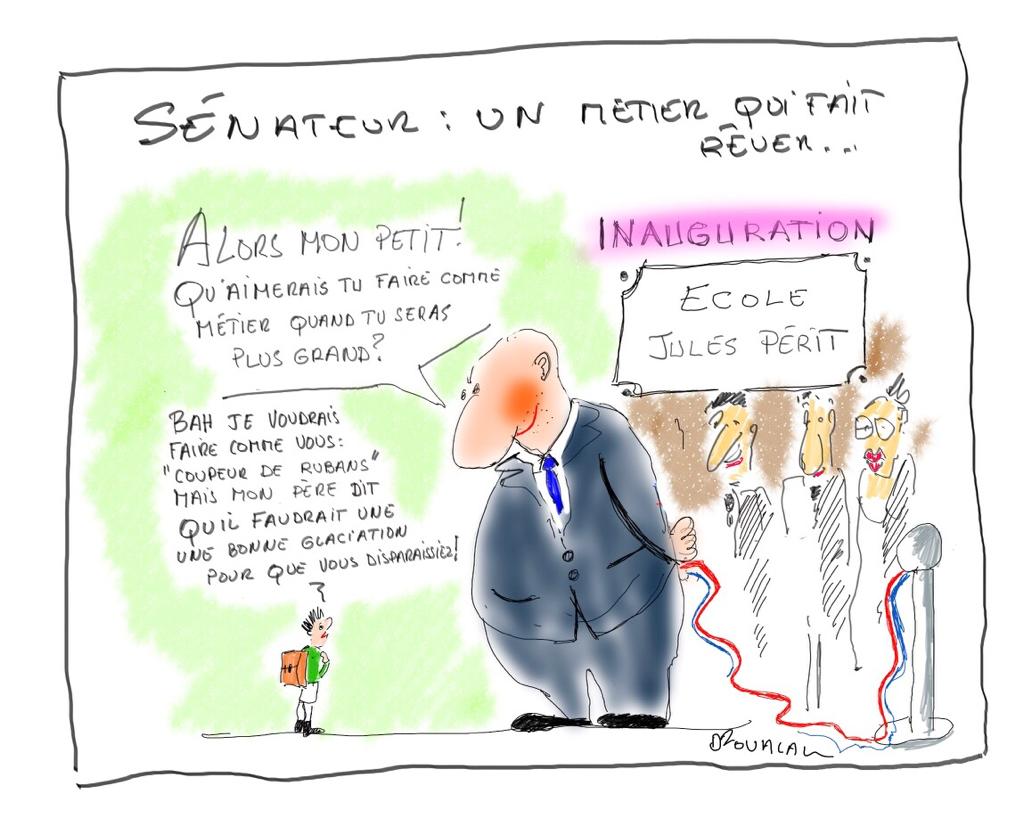 SÉNATEUR : UN METIER QUI FAIT
RÊVER...
ALORS MON PETIT!
QU'AIMERAIS TU FAIRE COMME
MÉTIER QUAND TU SERAS
PLUS GRAND?
INAUGURATION
ECOLE
JULES PÉRIT
BAH JE VOUDRAIS
FAIRE COMME VOUS:
"COUPEUR DE RUBANS"
MAIS MON PÈRE DIT
QU'IL FAUDRAIT UNE
UNE BONNE GLACIATION
POUR QUE VOUS DISPARAISSIEZ!